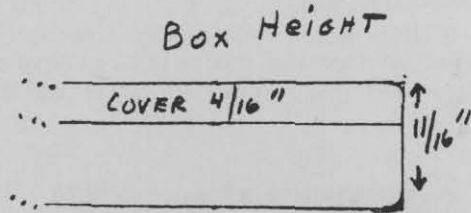 Box HeigHT
COVER 4/16"
11/16"